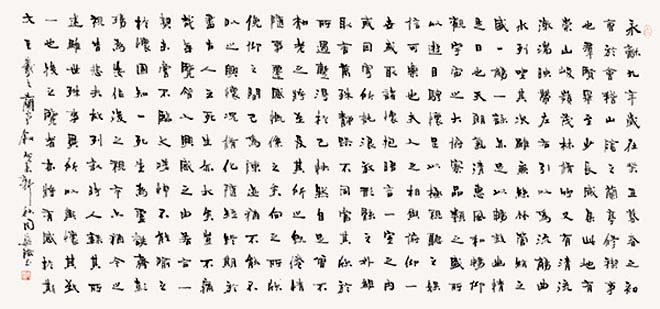 永龢九年歲在癸丑暮春之初
會於會稽山陰之蘭亭修稧事
也群賢畢至少長咸集此地有
崇山峻領茂林修竹又有清流
激湍映帶左右引以為流觴曲
水列坐其次雖無絲竹管弦之
盛一觴一詠亦足以暢敘幽情
是日也天朗氣清惠風和暢仰
觀宇宙之大俯察品類之盛所
以遊目騁懷足以極視聽之娛
信可樂也夫人之相與俯仰一
世或取諸懷抱悟言一室之內
或因寄所託放浪形骸之外雖
取舍萬殊靜躁不同當其欣於
所遇暫得於己快然自足不
知老之將至及其所之既倦情
隨事遷感慨係之矣向之所欣
俛仰之間已為陳跡猶不能不
以之興懷況修短隨化終期於
盡古人云死生亦大矣豈不痛
哉每覽昔人興感之由若合一
契未嘗不臨文嗟悼不能喻之
於懷固知一死生為虛誕齊彭
殤為妄作後之視今亦猶今之
視昔悲夫故列敘時人錄其所
述雖世殊事異所以興懷其致
一也後之覽者亦將有感於斯
文 王羲之蘭亭敘 癸未新秋周